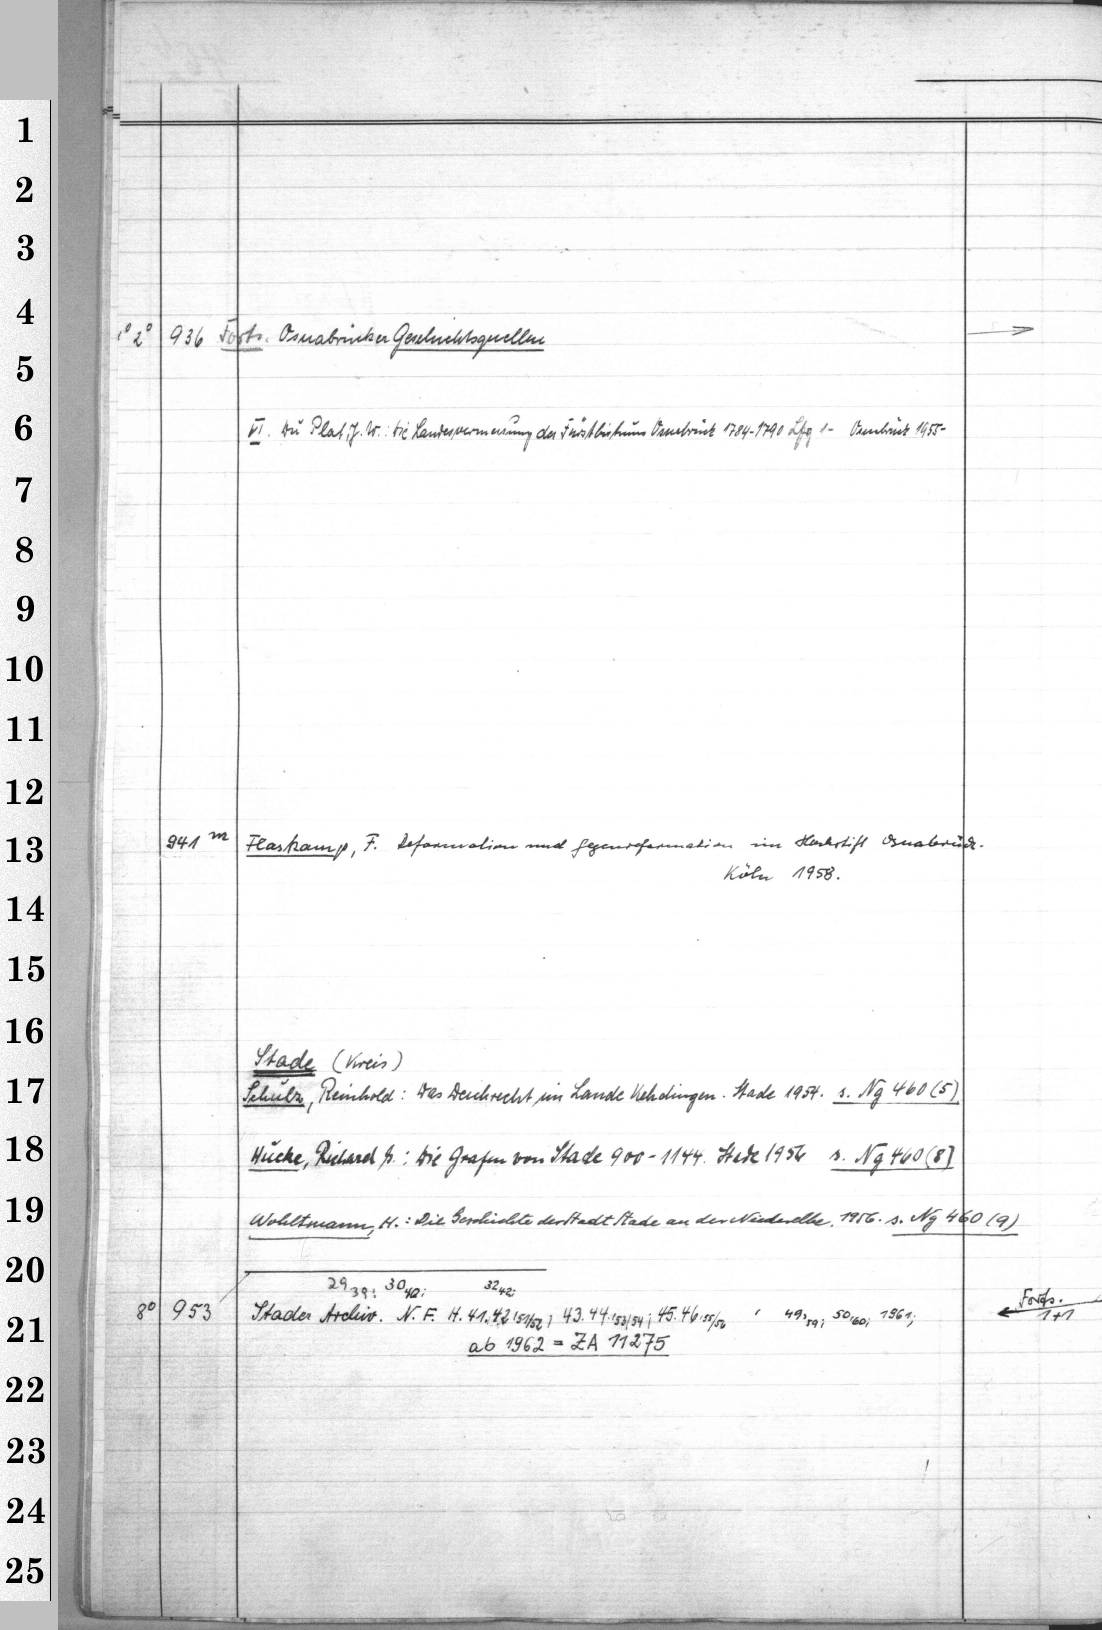 1
2
3
4
4° 2° 936 Forts. Osnabrücker Geschichtsquellen
5
6
VI. Du Plat, J. W.: Die Landesvermessung des Fürstbistums Osnabrück 1784-1790 Lfg 1- Osnabrück 1955-
7
8
9
10
11
12
13
941 m Flaskamp, F. Reformation und Gegenreformation im Hochstift Osnabrück.
Köln 1958.
14
15
16
Stade (Kreis)
17
Schulze, Reinhold: Das Deichrecht im Lande Kehdingen. Stade 1954. s. Ng 460 (5)
18
Hucke, Richard G.: Die Grafen von Stade 900-1144. Stade 1956 s. Ng 460 (8)
19
Wohltmann, H.: Die Geschichte der Stadt Stade an der Niederelbe. 1956. s. Ng 460 (9)
20
29,39; 30,40; 32,42;
8° 953 Stader Archiv. N. F. H. 41.42,51/52; 43.44,53/54; 45.46,55/56 49,59; 50,60; 1961;
Forts.
1+1
21
ab 1962 = ZA 11275
22
23
24
25